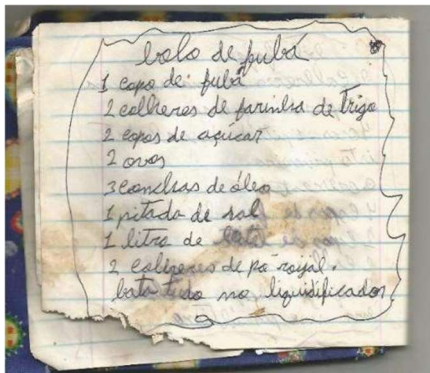 bolo de fubá
1 copo de fubá
2 colheres de farinha de Trigo
2 copos de açucar
2 ovos
3 conchas de óleo
1 pitada de sal
1 litro de
2 colheres de pó roijal.
bata tudo no liquidificador